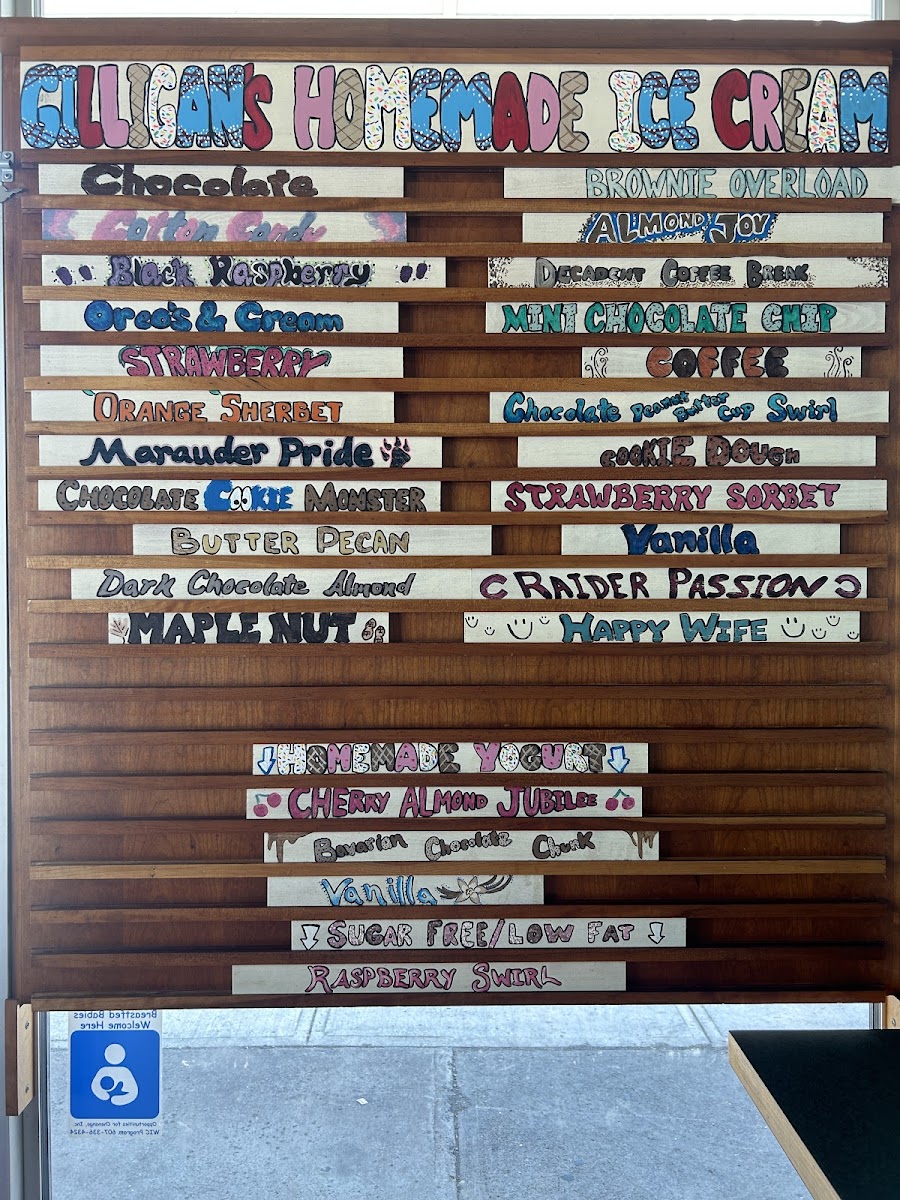 GILLIGAN'S HOMEMADE ICE CREAM
Chocolate
BROWNIE OVERLOAD
Cotton Candy
ALMOND JOY
Black Raspberry
DECADENT COFFEE BREAK
Oreo's & Cream
MINT CHOCOLATE CHIP
STRAWBERRY
COFFEE
ORANGE SHERBET
Chocolate Peanut Butter Cup Swirl
Marauder Pride
COOKIE DOUGH
CHOCOLATE COOKIE MONSTER
STRAWBERRY SORBET
BUTTER PECAN
Vanilla
Dark Chocolate Almond
RAIDER PASSION
MAPLE NUT
HAPPY WIFE
HOMEMADE YOGURT
CHERRY ALMOND JUBILEE
Bavarian Chocolate Chunk
Vanilla
SUGAR FREE/LOW FAT
RASPBERRY SWIRL
Breastfed Babies
Welcome Here
Opportunities for Chenango, Inc.
WIC Program 607-336-4324